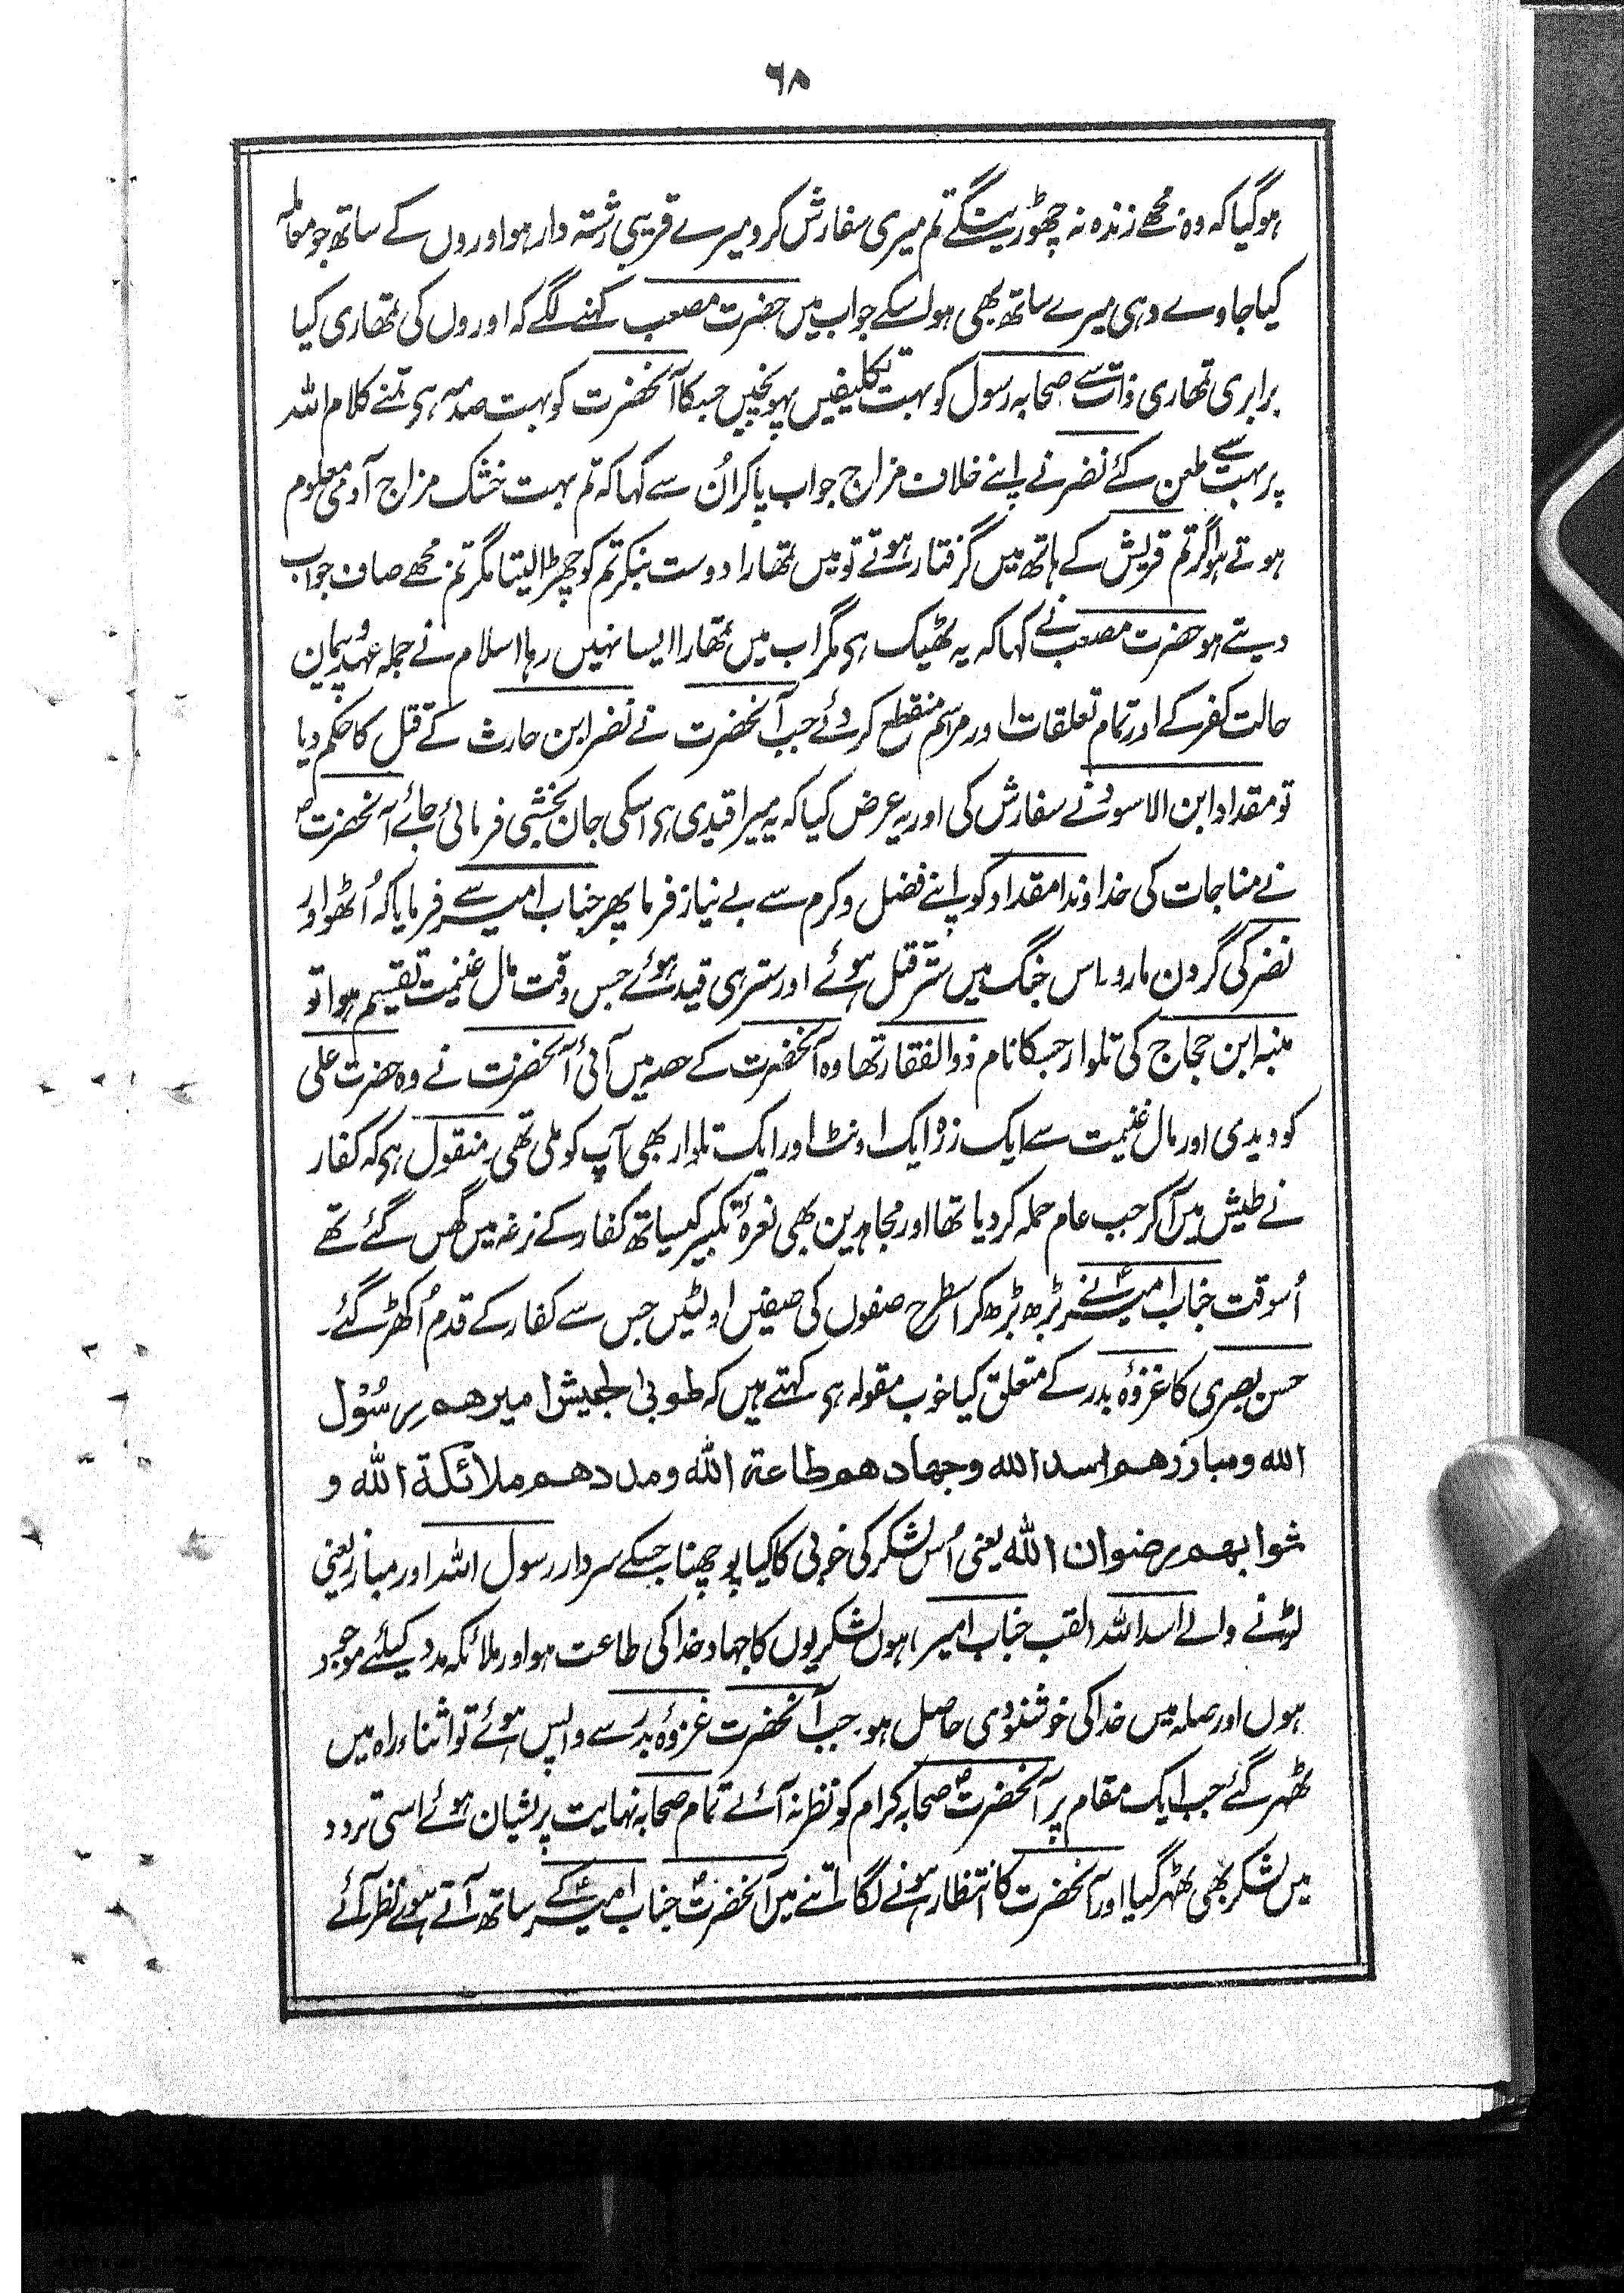 ۶۸
ہوگیا کہ وہ مجھے زندہ نہ چھوڑینگے تم میری سفارش کرو میرے قریبی رشتہ دار ہو اوروں کے ساتھ جو معاملہ
کیا جاوے وہی میرے ساتھ بھی ہو اسکے جواب میں حضرت مصعب کہنے لگے کہ اوروں کی تمھاری کیا
برابری تمھاری ذات سے صحابہ رسول کو بہت تکلیفیں پہونچیں جسکا آنحضرت کو بہت صدمہ ہی تمنے کلام اللہ
پر بہت سے طعن کئے نضر نے اپنے خلاف مزاج جواب پاکر اُن سے کہا کہ تم بہت خشک مزاج آدمی معلوم
ہوتے ہو اگر تم قریش کے ہاتھ میں گرفتار ہوتے تو میں تمھارا دوست بنکر تم کو چھڑا لیتا مگر تم مجھے صاف جواب
دیتے ہو حضرت مصعب نے کہا کہ یہ ٹھیک ہی مگر اب میں تمھارا ایسا نہیں رہا اسلام نے جملہ عہد و پیمان
حالت کفر کے اور تمام تعلقات اور مراسم منقطع کر دئے جب آنحضرت نے نضر ابن حارث کے قتل کا حکم دیا
تو مقداد ابن الاسود نے سفارش کی اور یہ عرض کیا کہ یہ میرا قیدی ہی اسکی جان بخشی فرمائی جائے آنحضرتؐ
نے مناجات کی خداوندا مقداد کو اپنے فضل و کرم سے بے نیاز فرما پھر جناب امیر سے فرمایا کہ اُٹھو اور
نضر کی گردن مارو۔ اس جنگ میں ستر قتل ہوئے اور ستر ہی قید ہوئے جس وقت مال غنیمت تقسیم ہوا تو
منبہ ابن حجاج کی تلوار جسکا نام ذوالفقار تھا وہ آنحضرت کے حصہ میں آئی آنحضرت نے وہ حضرت علی
کو دیدی اور مال غنیمت سے ایک زرہ ایک اونٹ اور ایک تلوار بھی آپ کو ملی تھی۔ منقول ہی کہ کفار
نے طیش میں آکر جب عام حملہ کر دیا تھا اور مجاہدین بھی نعرۂ تکبیر کیساتھ کفار کے نرغہ میں گھس گئے تھے
اُسوقت جناب امیرؑ نے بڑھ بڑھ کر اسطرح صفوں کی صفیں اولٹیں جس سے کفار کے قدم اُکھڑ گئے۔
حسن بصری کا غزوۂ بدر کے متعلق کیا خوب مقولہ ہی کہتے ہیں کہ طوبیٰ لجیش امیرھم رسُوْل
الله ومبارزھم اسد الله وجھادھم طاعة الله ومددھم ملائکة الله و
ثوابھم رضوان الله یعنی اُس لشکر کی خوبی کا کیا پوچھنا جسکے سردار رسول اللہ اور مبارز یعنی
لڑنے والے اسد اللہ القب جناب امیرؑ ہوں لشکریوں کا جہاد خدا کی طاعت ہو اور ملائکہ مدد کیلئے موجود
ہوں اور صلہ میں خدا کی خوشنودی حاصل ہو۔ جب آنحضرت غزوۂ بدر سے واپس ہوئے تو اثناء راہ میں
ٹھہر گئے جب ایک مقام پر آنحضرتؐ صحابہ کرام کو نظر نہ آئے تمام صحابہ نہایت پریشان ہوئے اسی تردد
میں لشکر بھی ٹھہر گیا اور آنحضرت کا انتظار ہونے لگا اتنے میں آنحضرتؐ جناب امیرؑ کے ساتھ آتے ہوئے نظر آئے